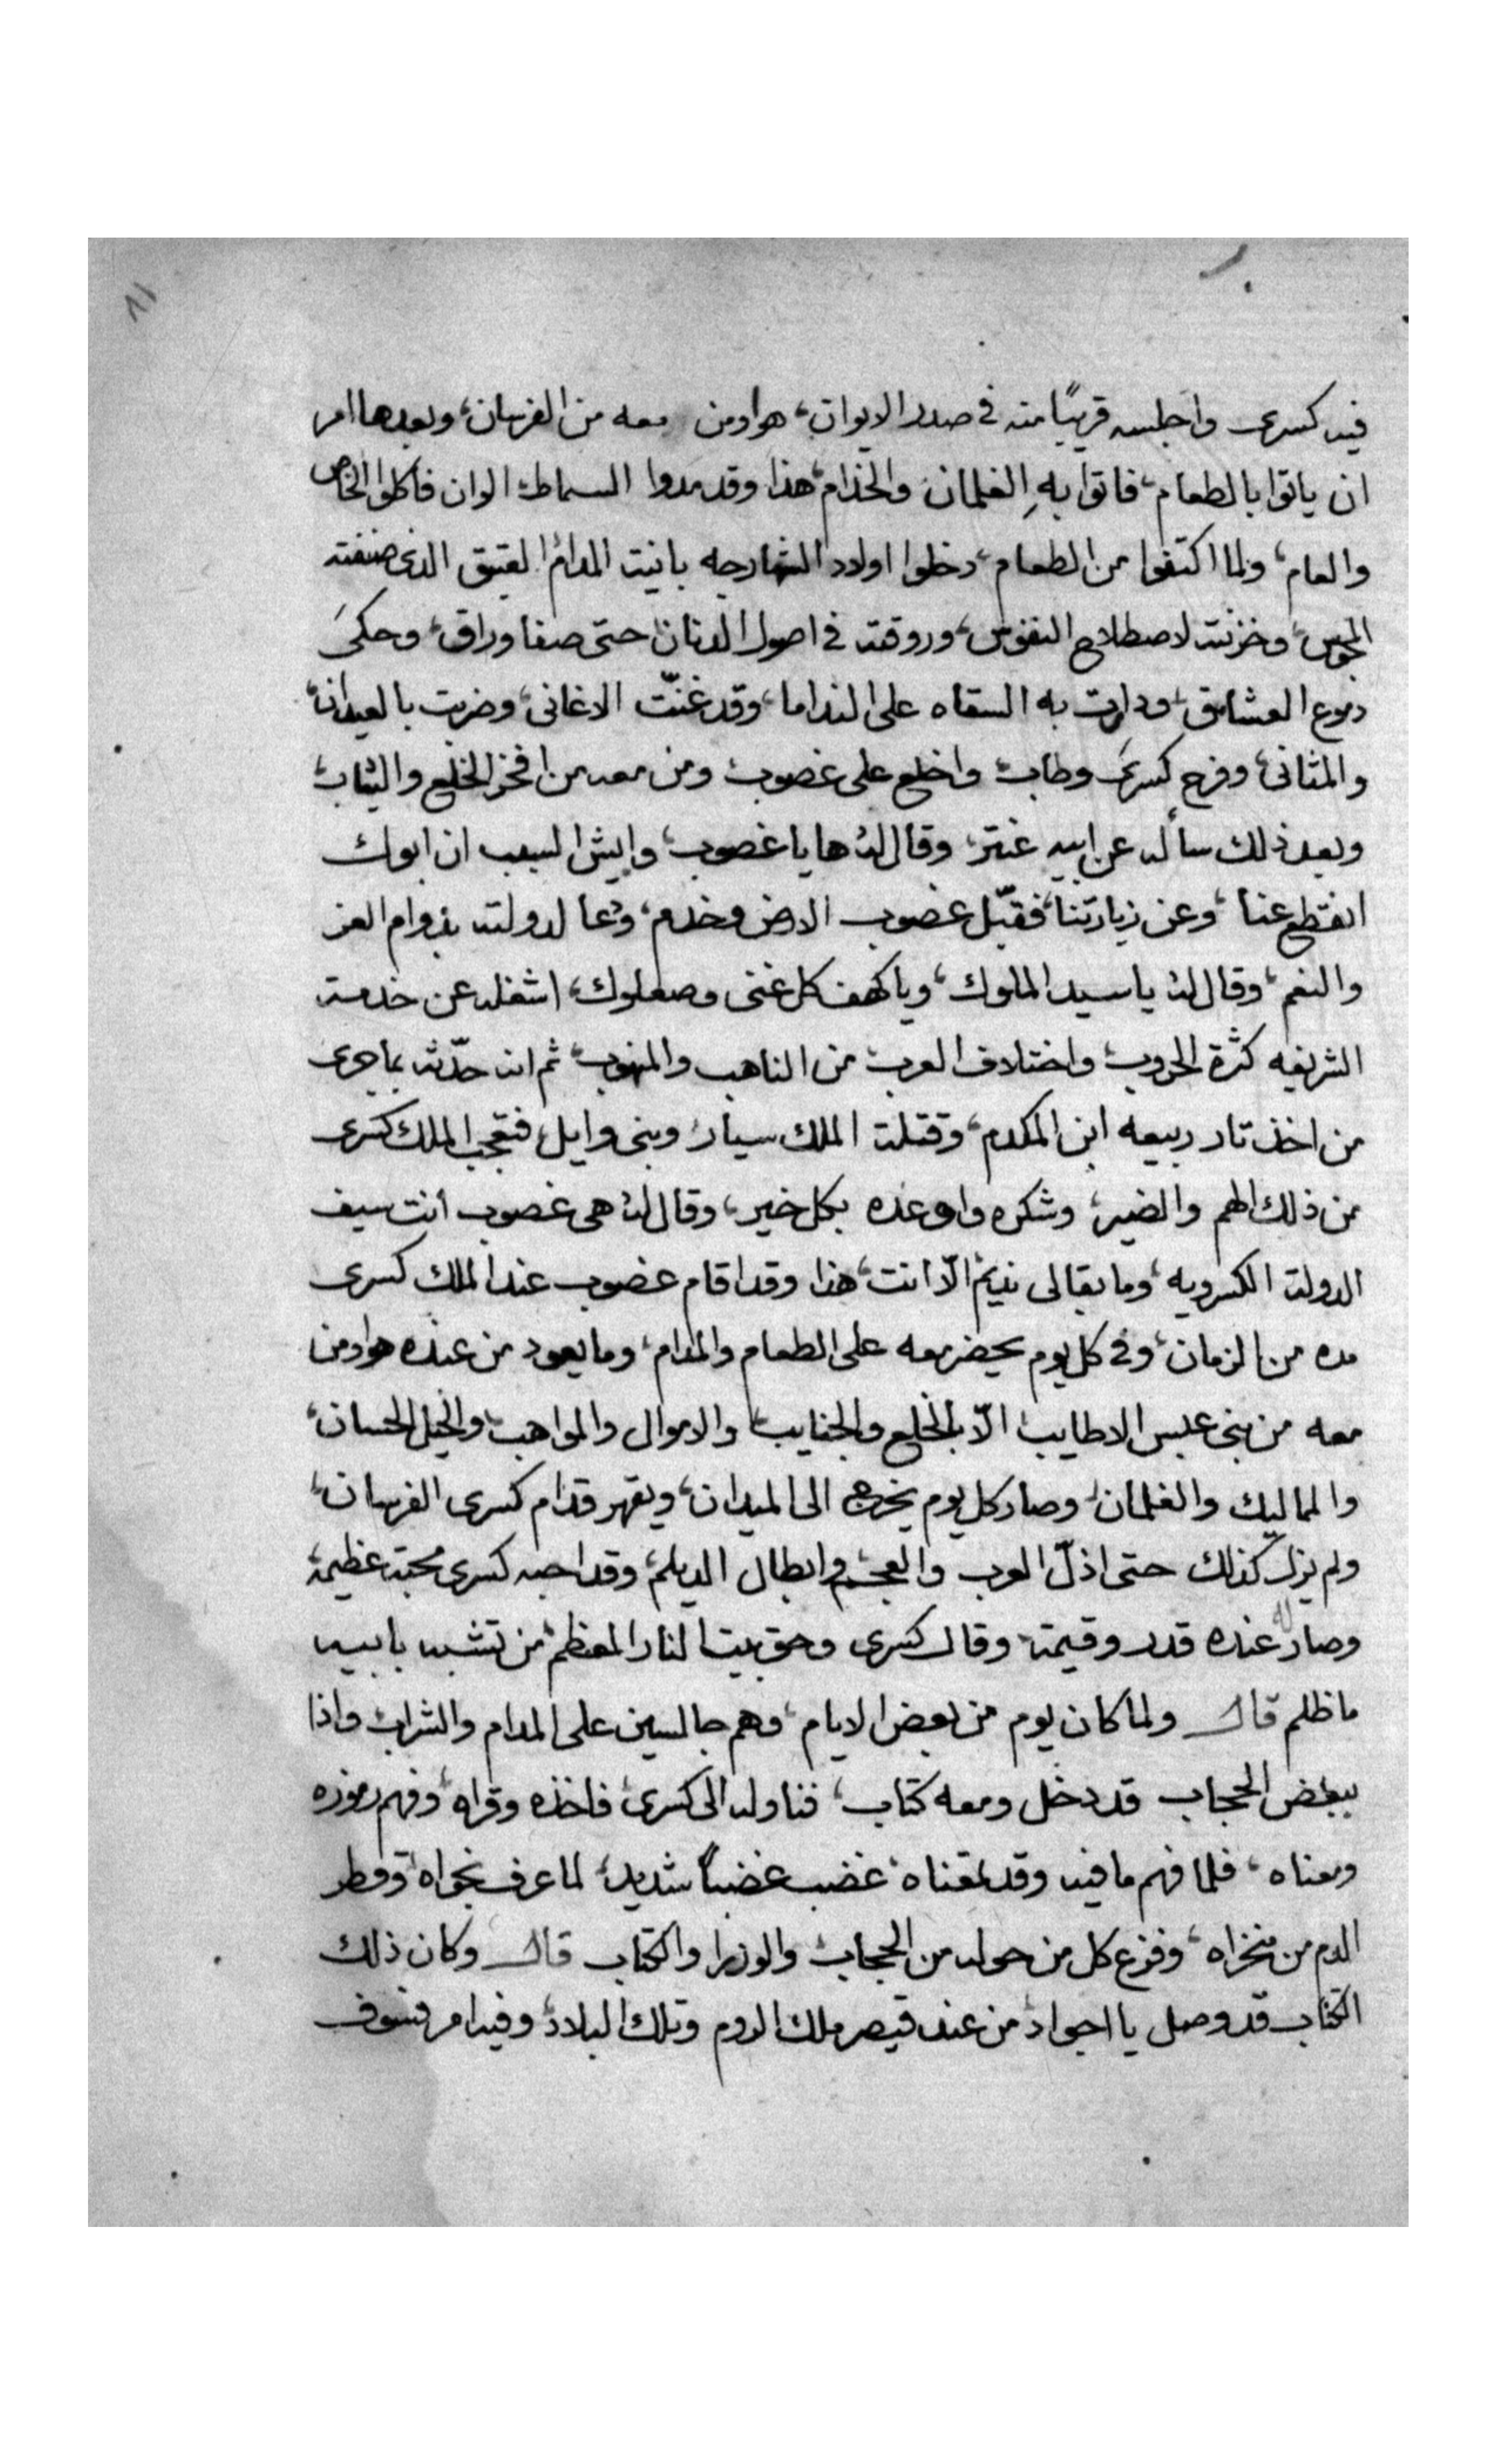 ٨١
فيه كسرى واجلسه قريبًا منه في صدر الايوان، هو اومن معه من الفرسان، وبعدها امر
ان ياتوا بالطعام، فاتوا بهِ الغلمان والخدام، هذا وقد مدوا السماط الوان فاكلوا الخاص
والعام، ولما اكتفوا من الطعام، دخلوا اولاد الشهارجه بانيت المدام العتيق الذي صنفته
المجوس، وخزنته لاصطلاح النفوس، وروقته في اصول الدنان حتى صفا وراق، وحكىَ
دموع العشاق، ودارت به السقاه على الندما، وقد غنّت الاغانى، وضربت بالعيدان،
والمثانى، وفرح كسرىَ وطاب، واخلع على غضوب، ومن معه من افخر الخلع والثياب،
وبعد ذلك سأله عن ابيه عنتر، وقال له ها يا غصوب، وايش السبب ان ابوك
انقطع عنا، وعن زيارتنا، فقبّل غضوب الارض وخدم، ودعا لدولته بدوام العز
والنعم، وقال له يا سيد الملوك، ويا كهف كل غنى وصعلوك، اشغله عن خدمته
الشريفه كثرة الحروب، واختلاف العرب من الناهب والمنهوب، ثم انه حدّثه بما جرى
من اخذ تار ربيعه ابن المكدم، وقتلة الملك سيار وبنى وايل، فتعجب الملك كسرى
من ذلك الهم والضير، وشكره واوعده بكل خير، وقال له هى غصوب انت سيف
الدولة الكسرويه، وما بقا لى نديم الّا انت، هذا وقد اقام غضوب عند الملك كسرى
مده من الزمان، وفى كل يوم يحضر معه على الطعام والمدام، وما يعود من عنده هو اومن
معه من بنى عبس الاطايب الّا بالخلع والجنايب، والاموال والمواهب، والخيل الحسان،
والمماليك والغلمان، وصار كل يوم يخرج الى الميدان، ويقهر قدام كسرى الفرسان،
ولم يزل كذلك حتى اذلّ العرب والعجم وابطال الديلم، وقد احبه كسرى محبة عظيمة
وصار له عنده قدر وقيمة، وقال كسرى وحق بيت النار المعظم، من تشبه بابيه
ما ظلم قال ولما كان يوم من بعض الايام، وهم جالسين على المدام والشراب واذا
ببعض الحجاب قد دخل ومعه كتاب، فناوله الى كسرى، فاخذه وقراه، وفهم رموزه
ومعناه، فلما فهم ما فيه وقد معناه، غضب غضباً شديد، لما عرف فحواه، وقطر
الدم من منخراه، وفزع كل من حوله من الحجاب، والوزرا والكتاب قال وكان ذلك
الكتاب قد وصل يا اجواد، من عند قيصر ملك الروم وتلك البلاد، وفيه امر فسوف